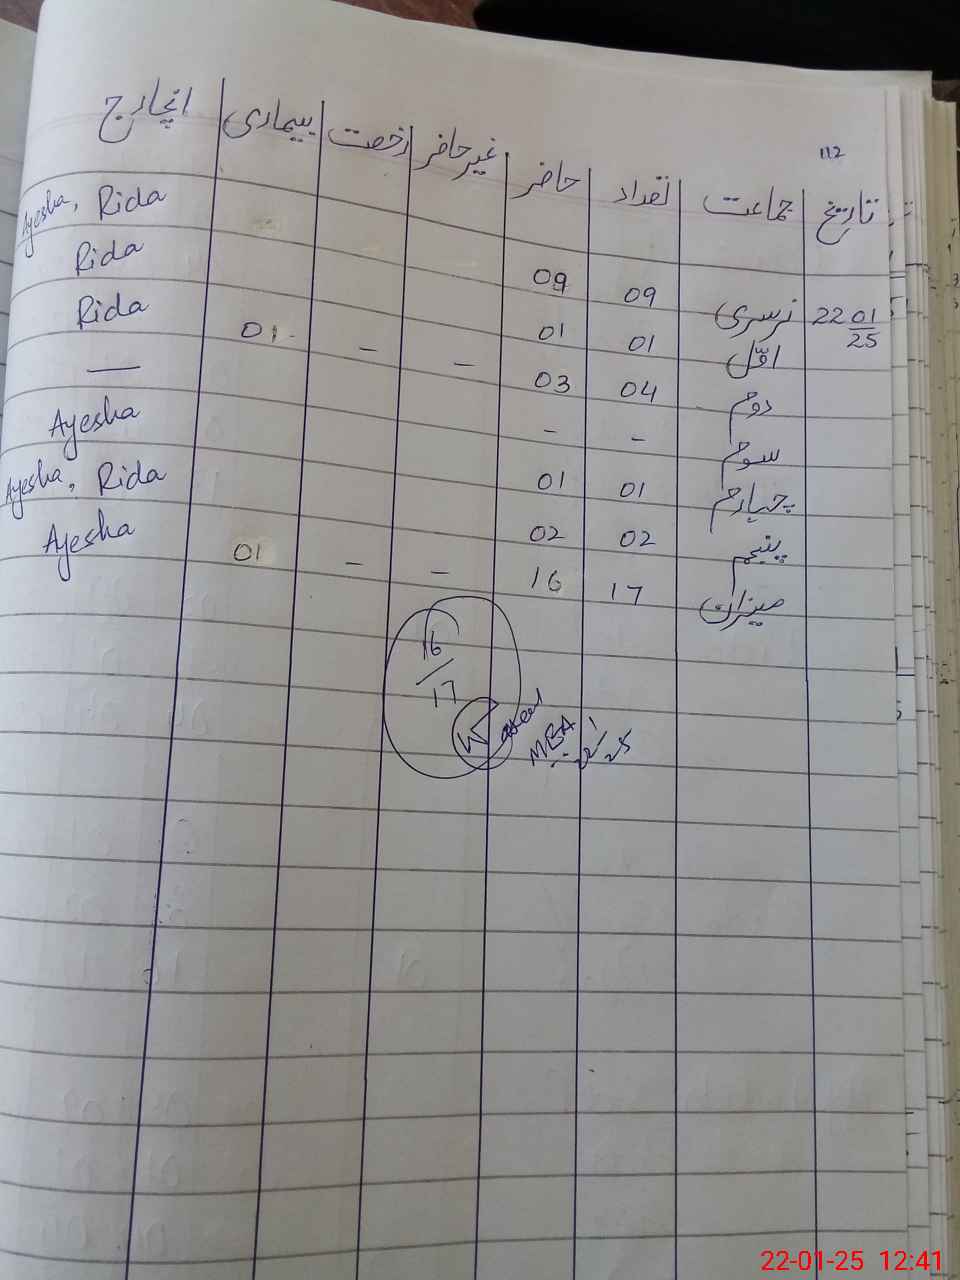 112
تاریخ جماعت تعداد حاضر غیرحاضر رخصت بیماری انچارج
22 01/25 نرسری 09 09 Ayesha, Rida
اوّل 01 01 Rida
دوم 04 03 – – 01 Rida
سوم - - —
چہارم 01 01 Ayesha
پنجم 02 02 Ayesha, Rida
میزان 17 16 – – 01 Ayesha
16/17
MEA
22-1-25
22-01-25 12:41